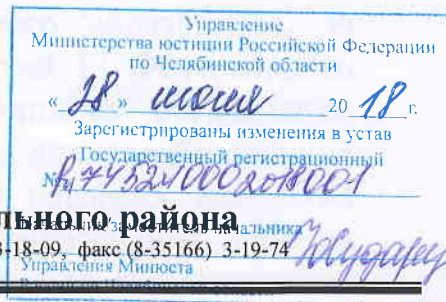 Управление
Министерства юстиции Российской Федерации
по Челябинской области
« 28 » июня 20 18 г.
Зарегистрированы изменения в устав
Государственный регистрационный
№ Ru745210002018001
льного района
-18-09, факс (8-35166) 3-19-74
Управления Минюста